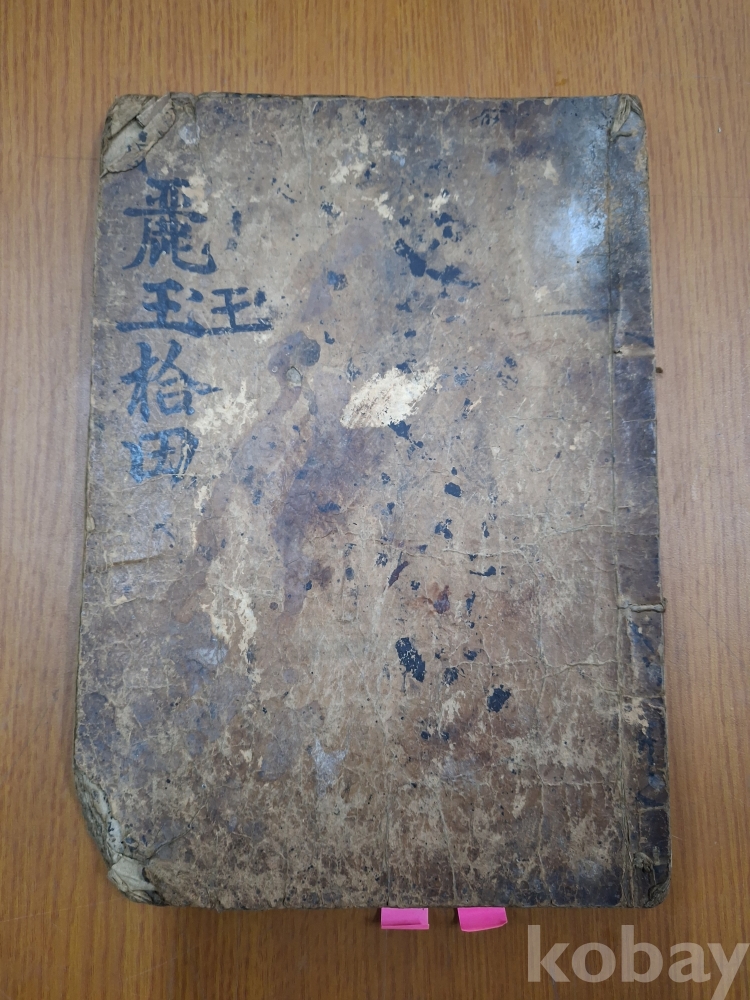 麗玉拾田
王
kobay